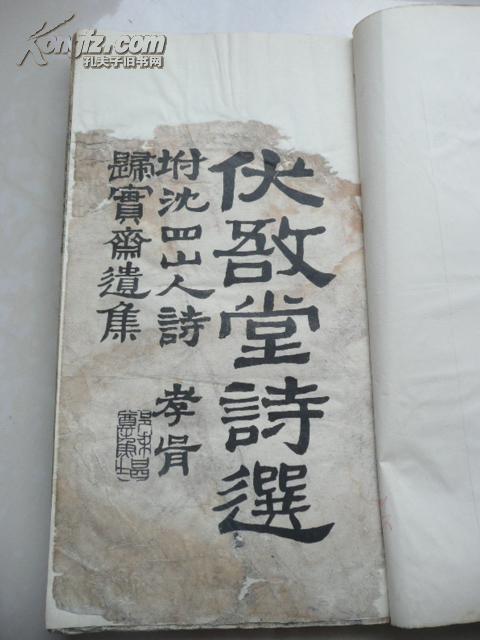 伏敔堂詩選
坿沈四山人詩
歸實齋遺集
孝肯
Kongfz.com
孔夫子旧书网